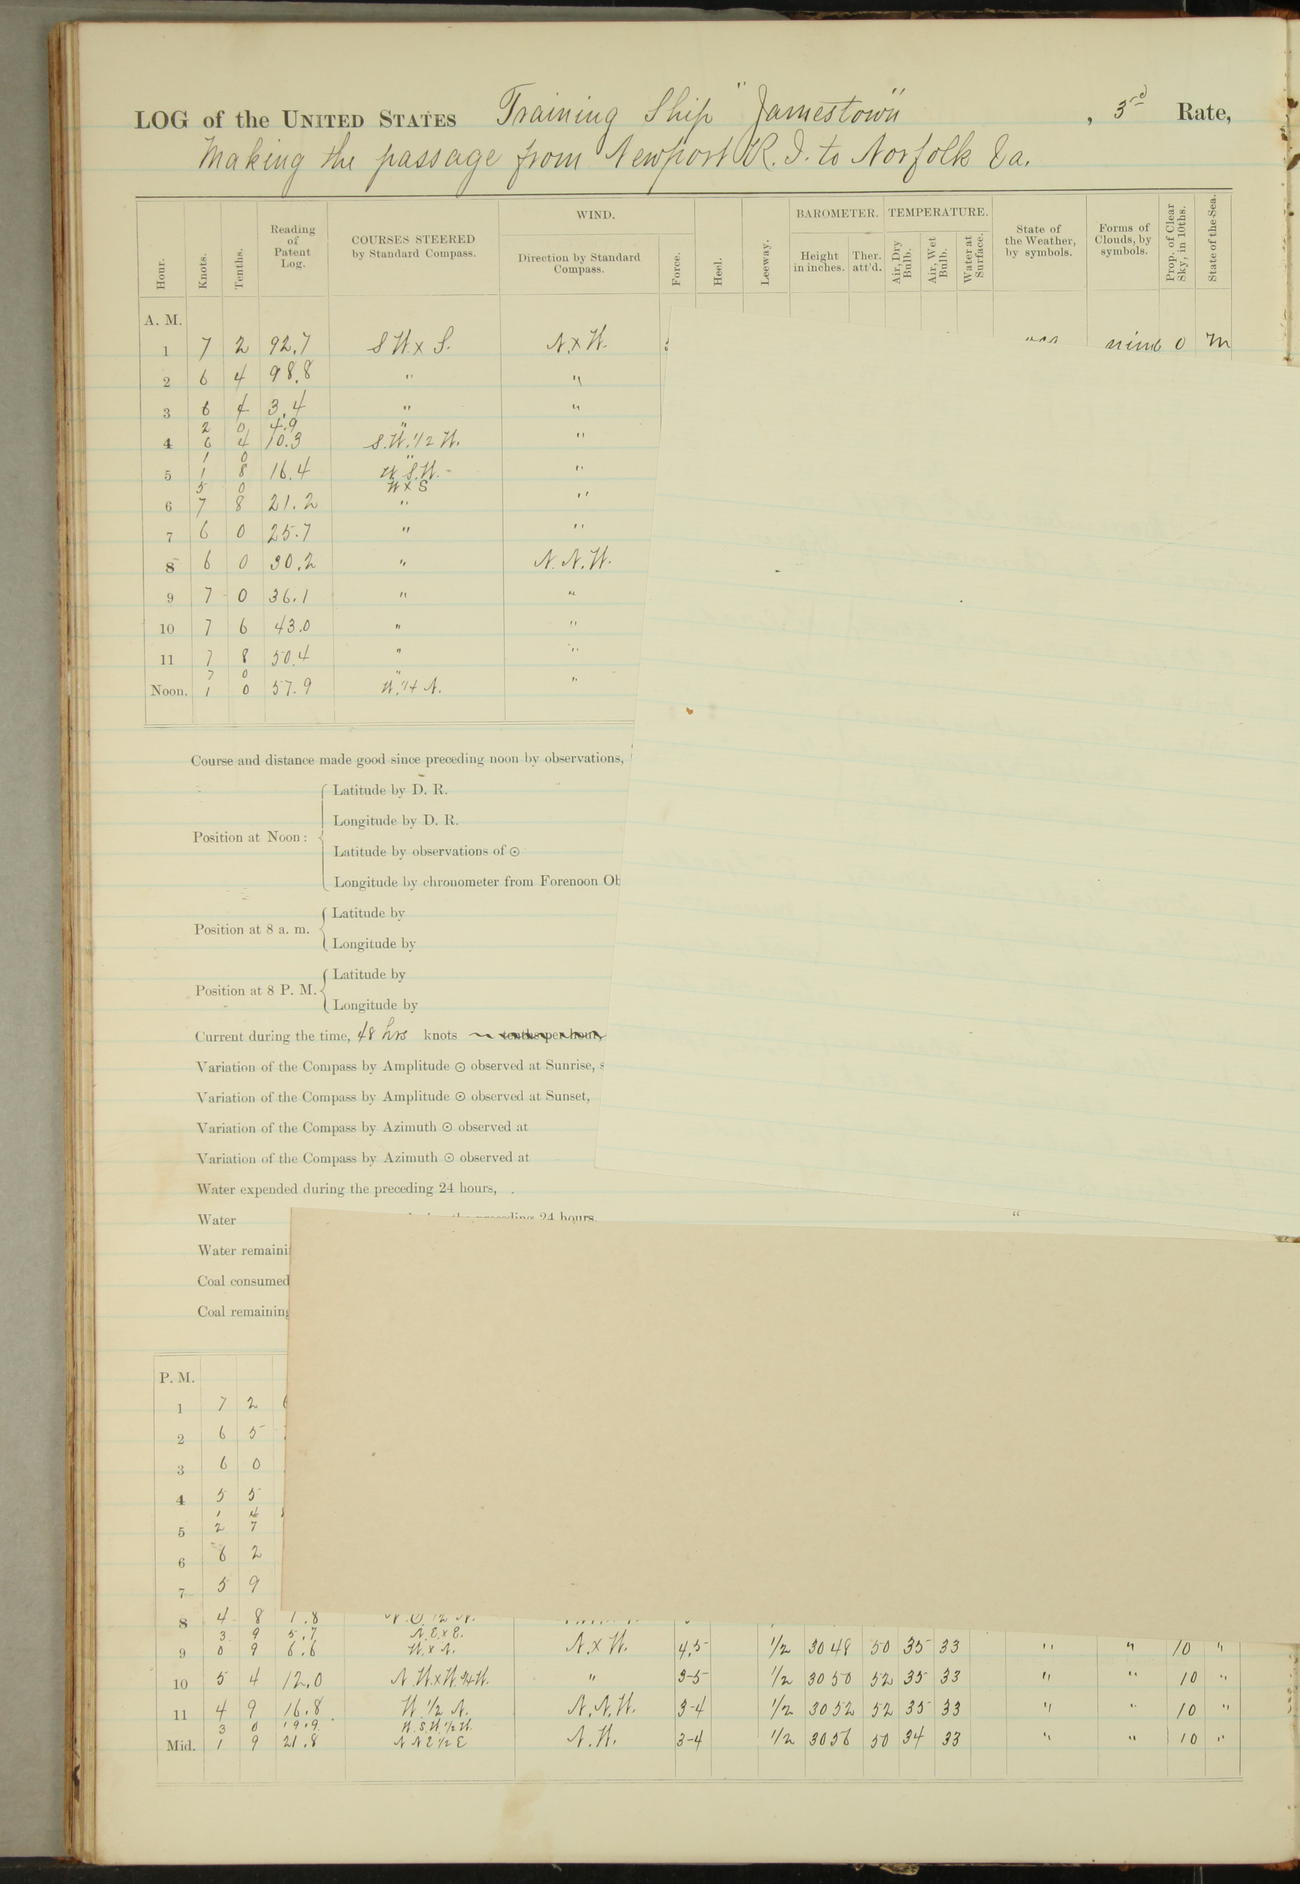 LOG of the UNITED STATES Training Ship "Jamestown", 3rd Rate,
Making the passage from Newport R.I. to Norfolk Va.
Hour. Knots. Tenths. Reading of Patent Log. COURSES STEERED by Standard Compass. WIND. Direction by Standard Compass. Force. Heel. Leeway. BAROMETER. Height in inches. Ther. att'd. TEMPERATURE. Air, Dry Bulb. Air, Wet Bulb. Water at Surface. State of the Weather, by symbols. Forms of Clouds, by symbols. Prop. of Clear Sky, in 10ths. State of the Sea.
A. M.
1 7 2 92.7 S W. x S. N. x W. 0 m
2 6 4 98.8 " "
3 6 4 3.4 " "
2 0 4.9 "
4 6 4 10.3 S.W. 1/2 W. "
1 0 "
5 1 8 16.4 W.S.W. "
5 0 W x S
6 7 8 21.2 " "
7 6 0 25.7 " "
8 6 0 30.2 " N.N.W.
9 7 0 36.1 " "
10 7 6 43.0 " "
11 7 8 50.4 " "
7 0 "
Noon. 1 0 57.9 W. 1/4 N. "
Course and distance made good since preceding noon by observations,
Position at Noon:
Latitude by D. R.
Longitude by D. R.
Latitude by observations of ⊙
Longitude by chronometer from Forenoon
Position at 8 a. m.
Latitude by
Longitude by
Position at 8 P. M.
Latitude by
Longitude by
Current during the time, 48 hrs knots tenths per hour,
Variation of the Compass by Amplitude ⊙ observed at Sunrise,
Variation of the Compass by Amplitude ⊙ observed at Sunset,
Variation of the Compass by Azimuth ⊙ observed at
Variation of the Compass by Azimuth ⊙ observed at
Water expended during the preceding 24 hours,
Water 24 hours.
Water remaini
Coal consumed
Coal remaining
P. M.
1 7 2
2 6 5
3 6 0
4 5 5
1 4
5 2 7
6 6 2
7 5 9
8 4 8 1.8
3 9 5.7 N.E. x E.
9 0 9 6.6 W. x N. N. x W. 4.5 1/2 30 48 50 35 33 " " 10 "
10 5 4 12.0 N.W. x W. 3/4 W. " 3-5 1/2 30 50 52 35 33 " " 10 "
11 4 9 16.8 W. 1/2 N. N.N.W. 3-4 1/2 30 52 52 35 33 " " 10 "
3 0 19.9 W.S.W. 1/2 W.
Mid. 1 9 21.8 N N E 1/2 E N.W. 3-4 1/2 30 56 50 34 33 " " 10 "